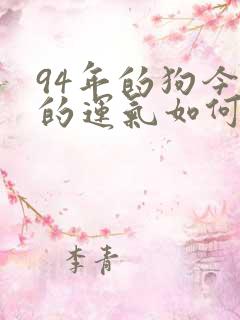 94年的狗今
的運氣如何
李青